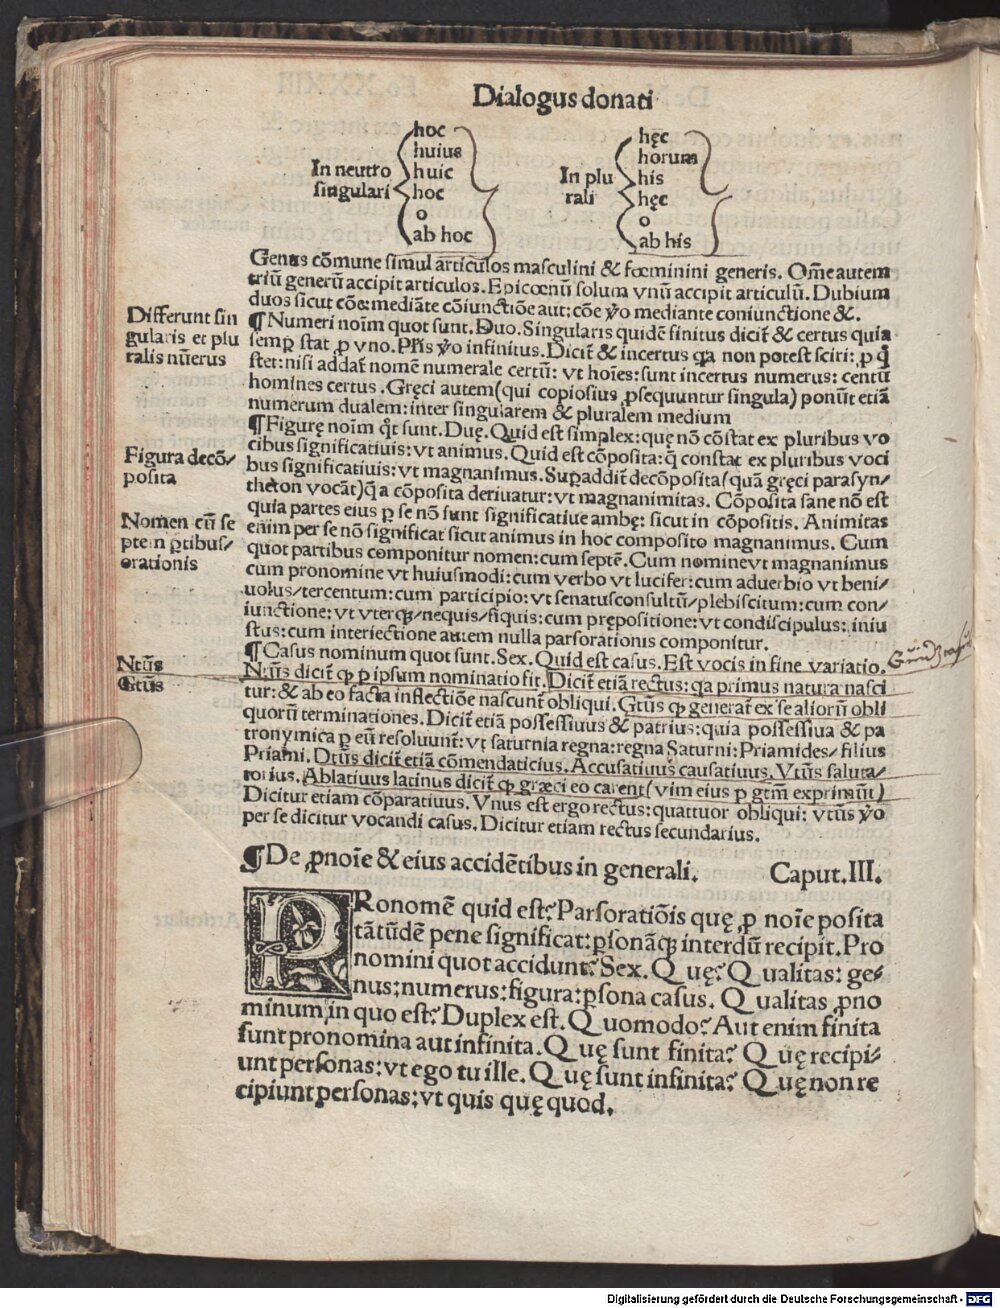 Dialogus donati
In neutro
singulari
hoc
huius
huic
hoc
o
ab hoc
In plu
rali
hęc
horum
his
hęc
o
ab his
Genus cõmune simul articulos masculini & fœminini generis. Oĩne autem
triũ generũ accipit articulos. Epicœnũ solum vnũ accipit articulũ. Dubium
duos sicut cõe: mediãte cõiunctiõe aut: cõe ꝟo mediante coniunctione &.
Differunt sin
gularis et plu
ralis nũerus
¶ Numeri noĩm quot sunt. Duo. Singularis quidẽ finitus dicit̃ & certus quia
semꝑ stat ꝓ vno. Pl̃is ꝟo infinitus. Dicit̃ & incertus qa non potest sciri: ꝓ q̃
stet: nisi addat̃ nomẽ numerale certũ: vt hoĩes: sunt incertus numerus: centũ
homines certus. Gręci autem (qui copiosius ꝓsequuntur singula) ponũt etiã
numerum dualem: inter singularem & pluralem medium
¶ Figurę noĩm q̃t sunt. Duę. Quid est simplex: quę nõ cõstat ex pluribus vo
cibus significatiuis: vt animus. Quid est cõposita: q̃ constat ex pluribus voci
Figura decõ/
posita
bus significatiuis: vt magnanimus. Suꝑaddit̃ decõposita (quã gręci parasyn/
theton vocãt) q̃ a cõposita deriuatur: vt magnanimitas. Cõposita sane nõ est
quia partes eius ꝑ se nõ sunt significatiue ambę: sicut in cõpositis. Animitas
Nomen cũ se
ptem ꝑtibus/
orationis
enim per se nõ significat sicut animus in hoc composito magnanimus. Cum
quot partibus componitur nomen: cum septẽ. Cum nomine vt magnanimus
cum pronomine vt huiusmodi: cum verbo vt lucifer: cum aduerbio vt beni/
uolus/tercentum: cum participio: vt senatusconsultũ/plebiscitum: cum con/
iunctione: vt vterqꝫ/nequis/siquis: cum prępositione: vt condiscipulus: iniu
stus: cum interiectione autem nulla parsorationis componitur.
¶ Casus nominum quot sunt. Sex. Quid est casus. Est vocis in fine variatio.
Ntũs
Gtũs
Ntũs dicit̃ ꝙ ꝑ ipsum nominatio fit. Dicit̃ etiã rectus: qa primus natura nasci
tur: & ab eo facta inflectiõe nascunt̃ obliqui. Gtũs ꝙ generat̃ ex se aliorũ obli
quorũ terminationes. Dicit̃ etiã possessiuus & patrius: quia possessiua & pa
tronymica ꝑ eũ resoluunt̃: vt saturnia regna: regna Saturni: Priamides/ filius
Priami. Dtũs dicit̃ etiã cõmendaticius. Accusatiuus causatiuus. Vtũs saluta/
torius. Ablatiuus latinus dicit̃ ꝙ græci eo carent (vim eius ꝑ gtm̃ exprimũt)
Dicitur etiam cõparatiuus. Vnus est ergo rectus: quattuor obliqui: vtũs ꝟo
per se dicitur vocandi casus. Dicitur etiam rectus secundarius.
¶ De ꝓnoĩe & eius accidẽtibus in generali. Caput. III.
PRonomẽ quid est? Parsoratiõis quę ꝓ noĩe posita
tãtũdẽ pene significat: ꝑsonãqꝫ interdũ recipit. Pro
nomini quot accidunt? Sex. Quę? Qualitas: ge/
nus: numerus: figura: ꝑsona casus. Qualitas ꝓno
minum in quo est? Duplex est. Quomodo? Aut enim finita
sunt pronomina aut infinita. Quę sunt finita? Quę recipi/
unt personas: vt ego tu ille. Quę sunt infinita? Quę non re
cipiunt personas: vt quis quę quod.
Digitalisierung gefördert durch die Deutsche Forschungsgemeinschaft - DFG